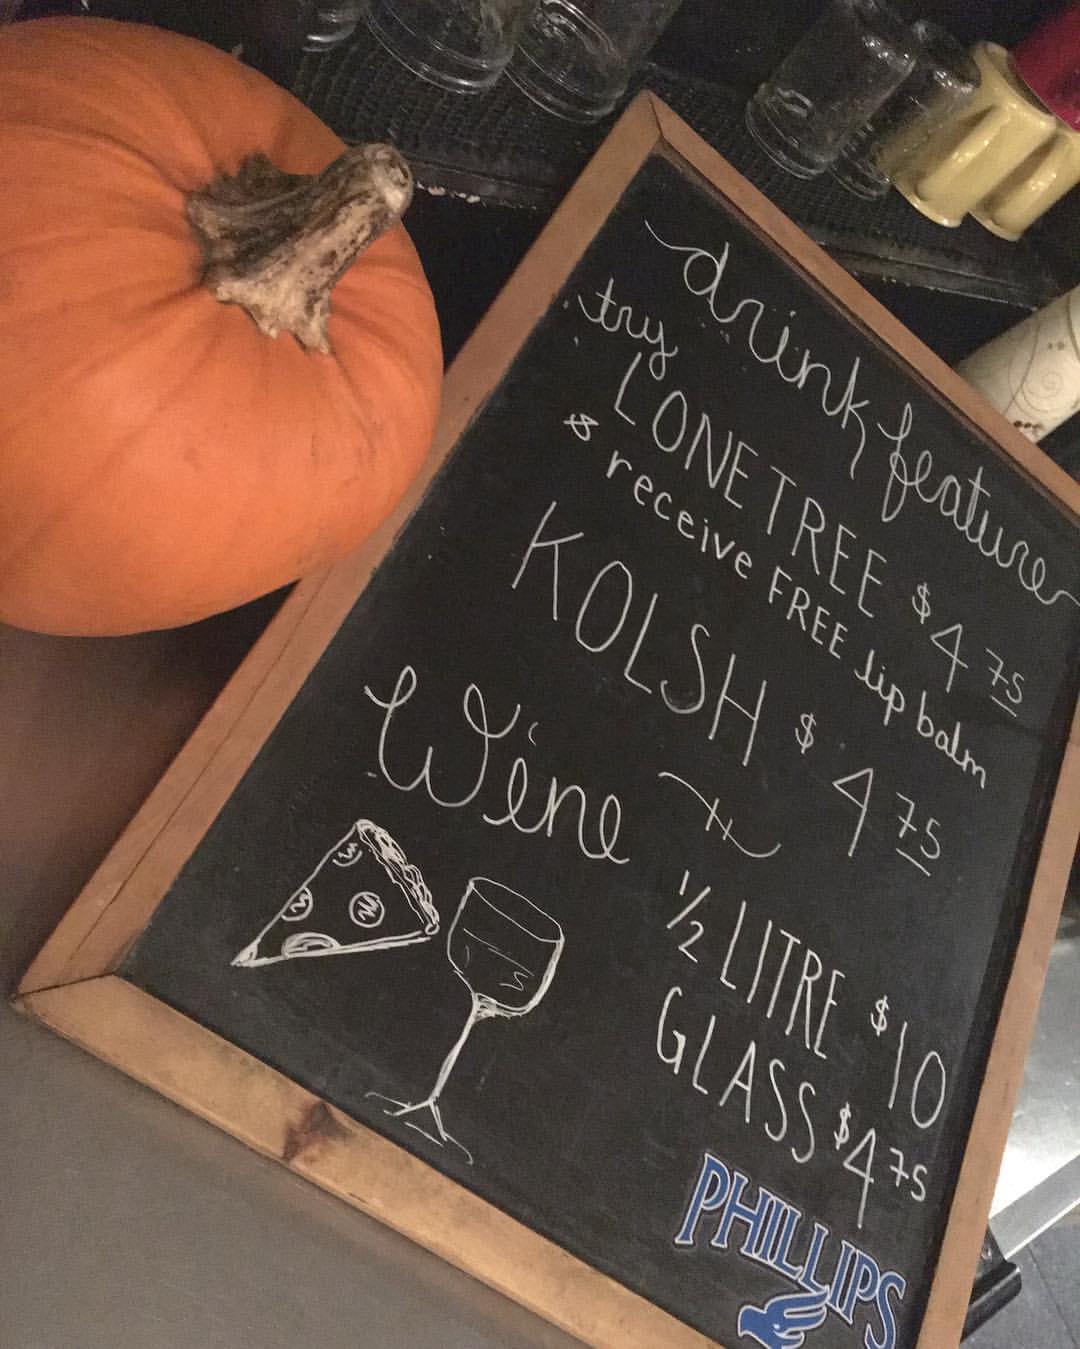 drink feature
try
LONETREE $4.75
& receive FREE lip balm
KOLSH $4.75
Wine
1/2 LITRE $10
GLASS $4.75
PHILLIPS